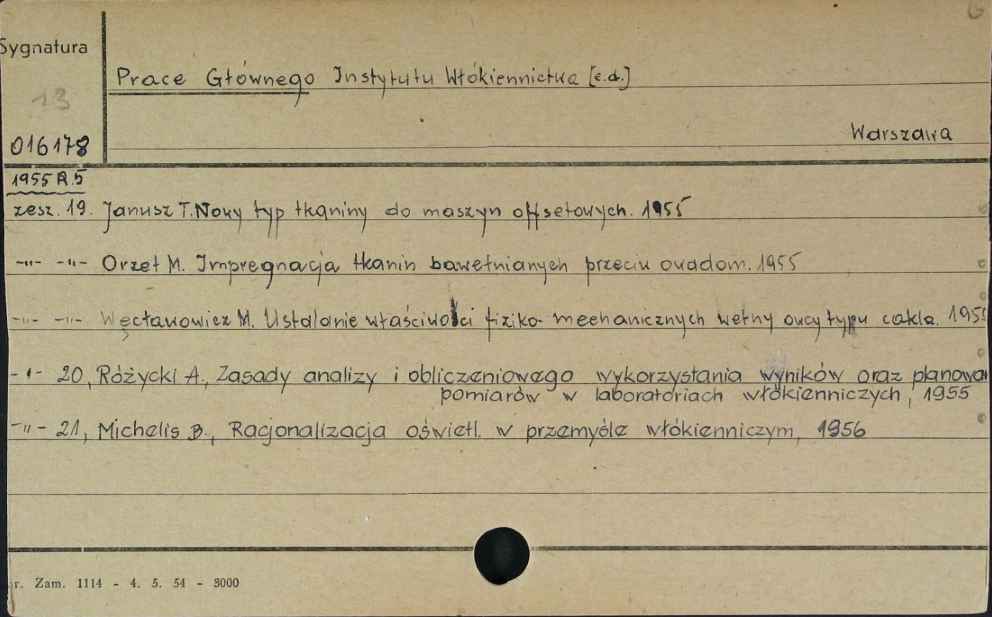 Sygnatura
13
Prace Głównego Instytutu Włókiennictwa [c.d.]
016178
Warszawa
1955 R.5
zesz. 19. Janusz T. Nowy typ tkaniny do maszyn offsetowych. 1955
-"- -"- Orzeł M. Impregnacja tkanin bawełnianych przeciw owadom. 1955
-"- -"- Węcławowicz M. Ustalanie właściwości fiziko-mechanicznych wełny owcy typu cakla. 1955
-"- 20, Różycki A., Zasady analizy i obliczeniowego wykorzystania wyników oraz planowa
pomiarów w laboratoriach włókienniczych, 1955
-"- 21, Michelis B., Racjonalizacja oświetl. w przemyśle włókienniczym, 1956
r. Zam. 1114 - 4. 5. 54 - 3000